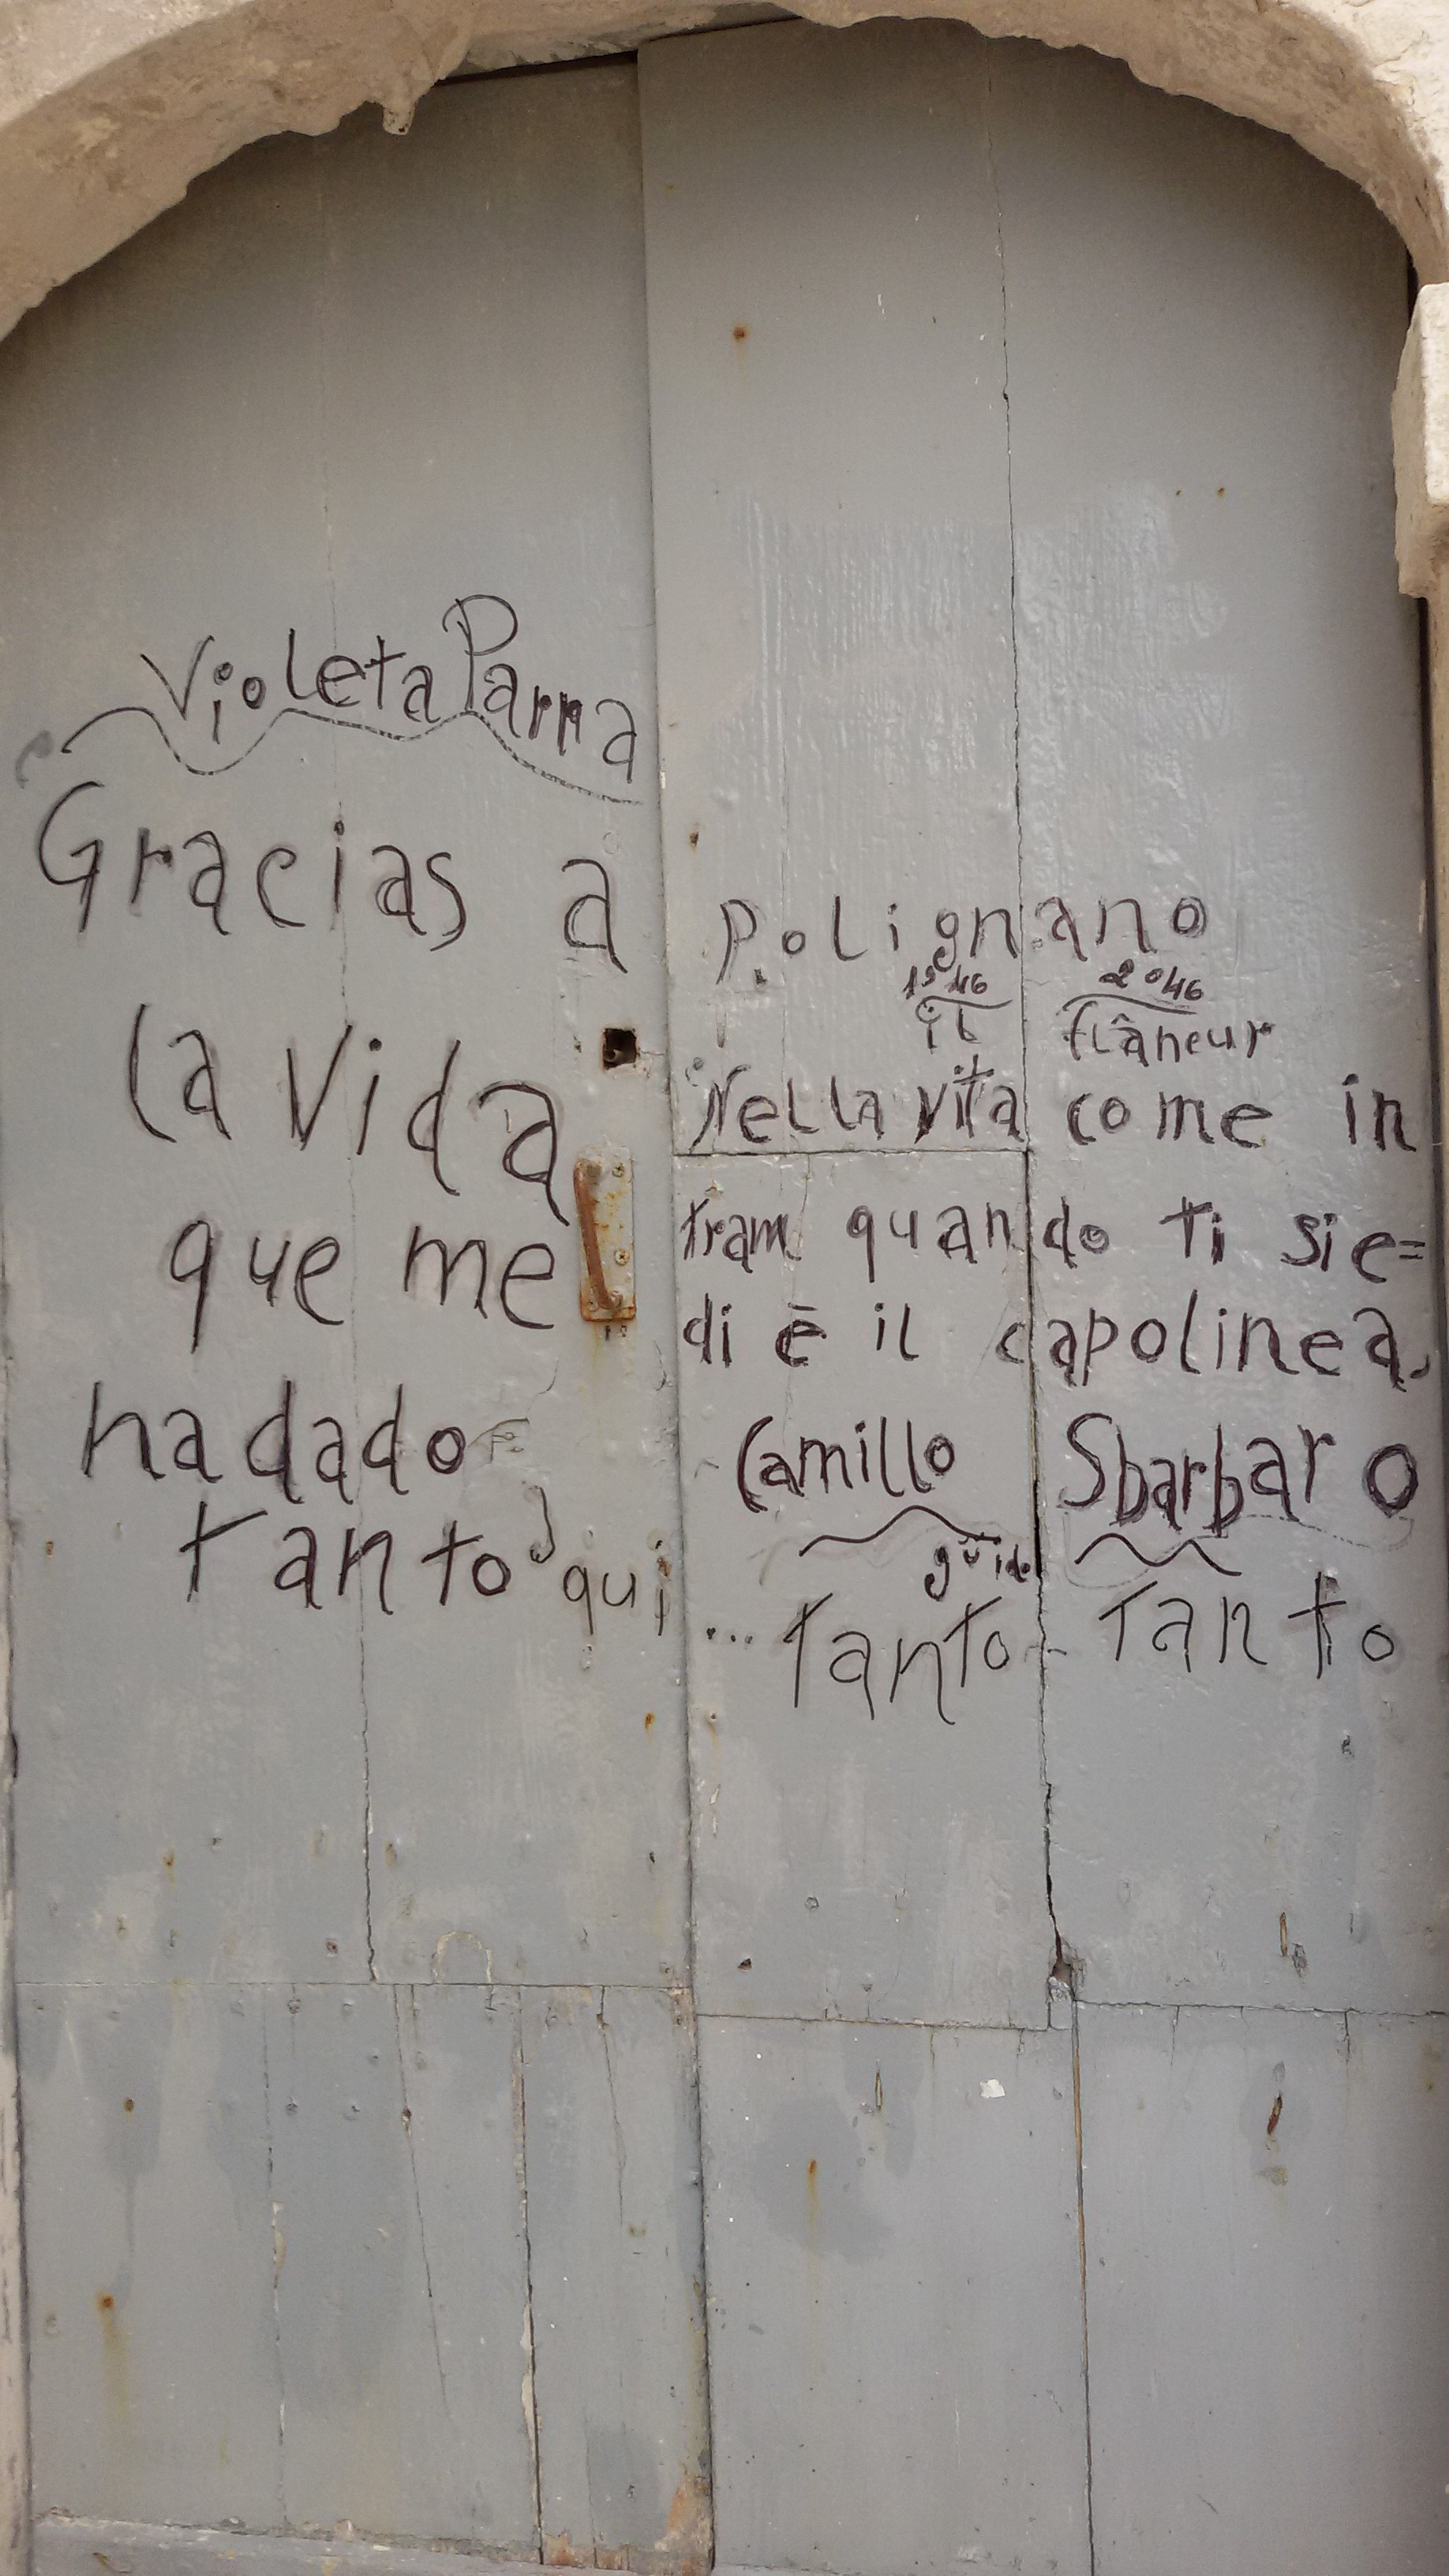 Violeta Parra
Gracias a
la Vida
que me
ha dado
tanto qui
Polignano
1946 2046
il flâneur
Nella vita come in
tram quando ti sie=
di è il capolinea.
Camillo Sbarbaro
guido
... Tanto - Tanto